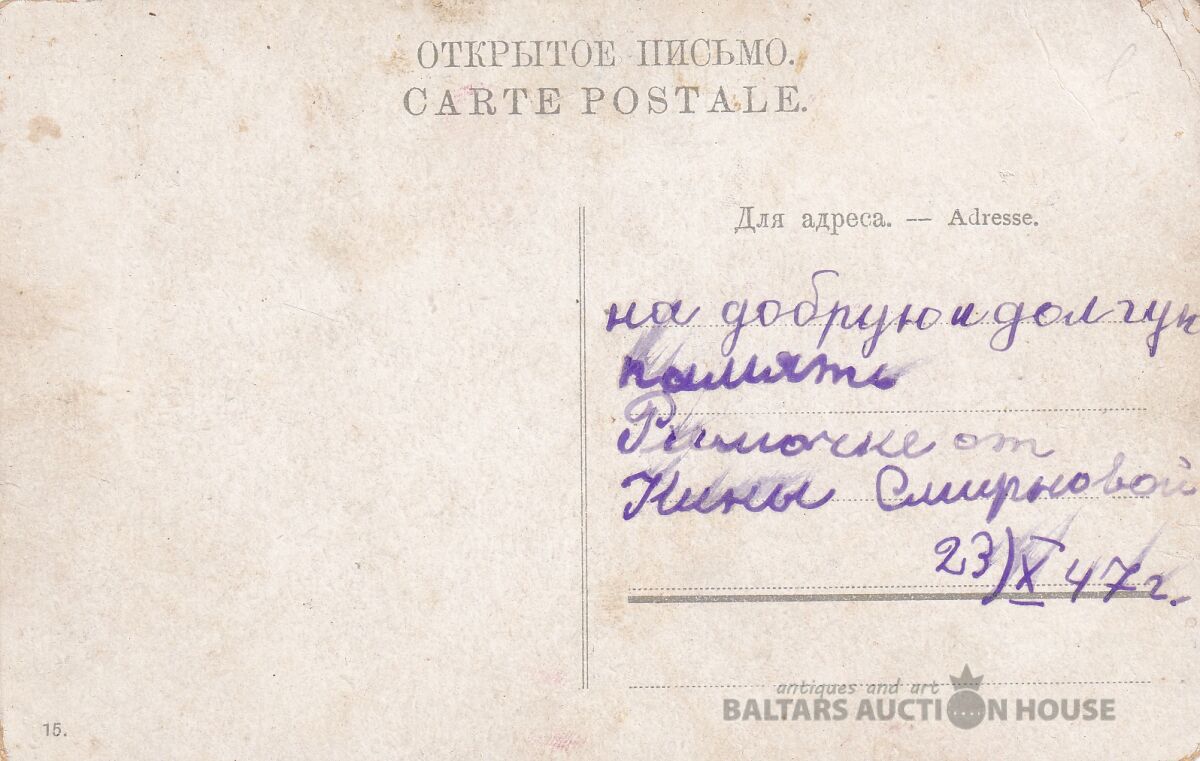 ОТКРЫТОЕ ПИСЬМО.
CARTE POSTALE.
Для адреса. — Adresse.
на добрую и долгую
память
Риммочке от
Нины Смирновой
23) X 47 г.
15.
antiques and art
BALTARS AUCTION HOUSE